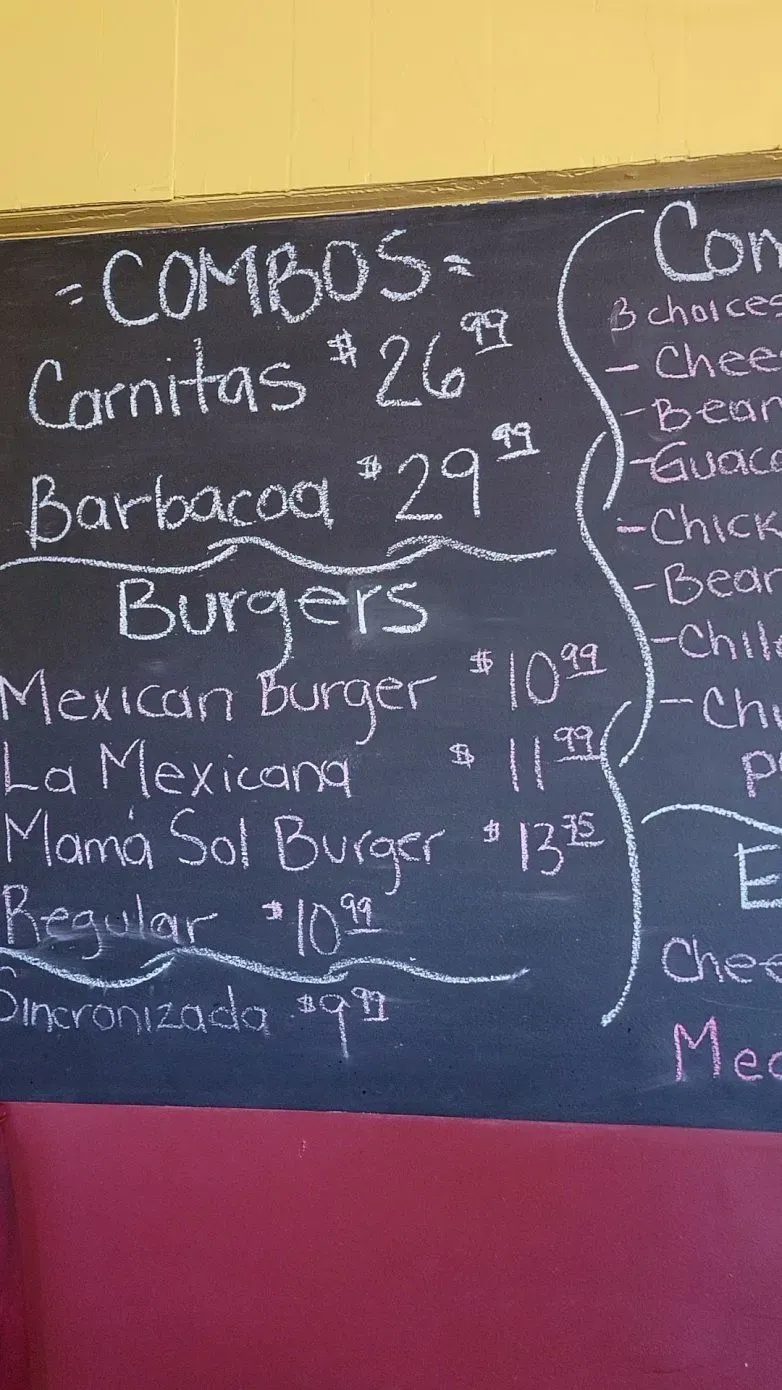 = COMBOS =
Carnitas $26.99
Barbacoa $29.99
Burgers
Mexican Burger $10.99
La Mexicana $11.99
Mamá Sol Burger $13.75
Regular $10.99
Sincronizada $9.99
Com
3 choices
- Chee
- Bean
- Guaca
- Chick
- Bean
- Chil
- Chi
E
Chee
Mea